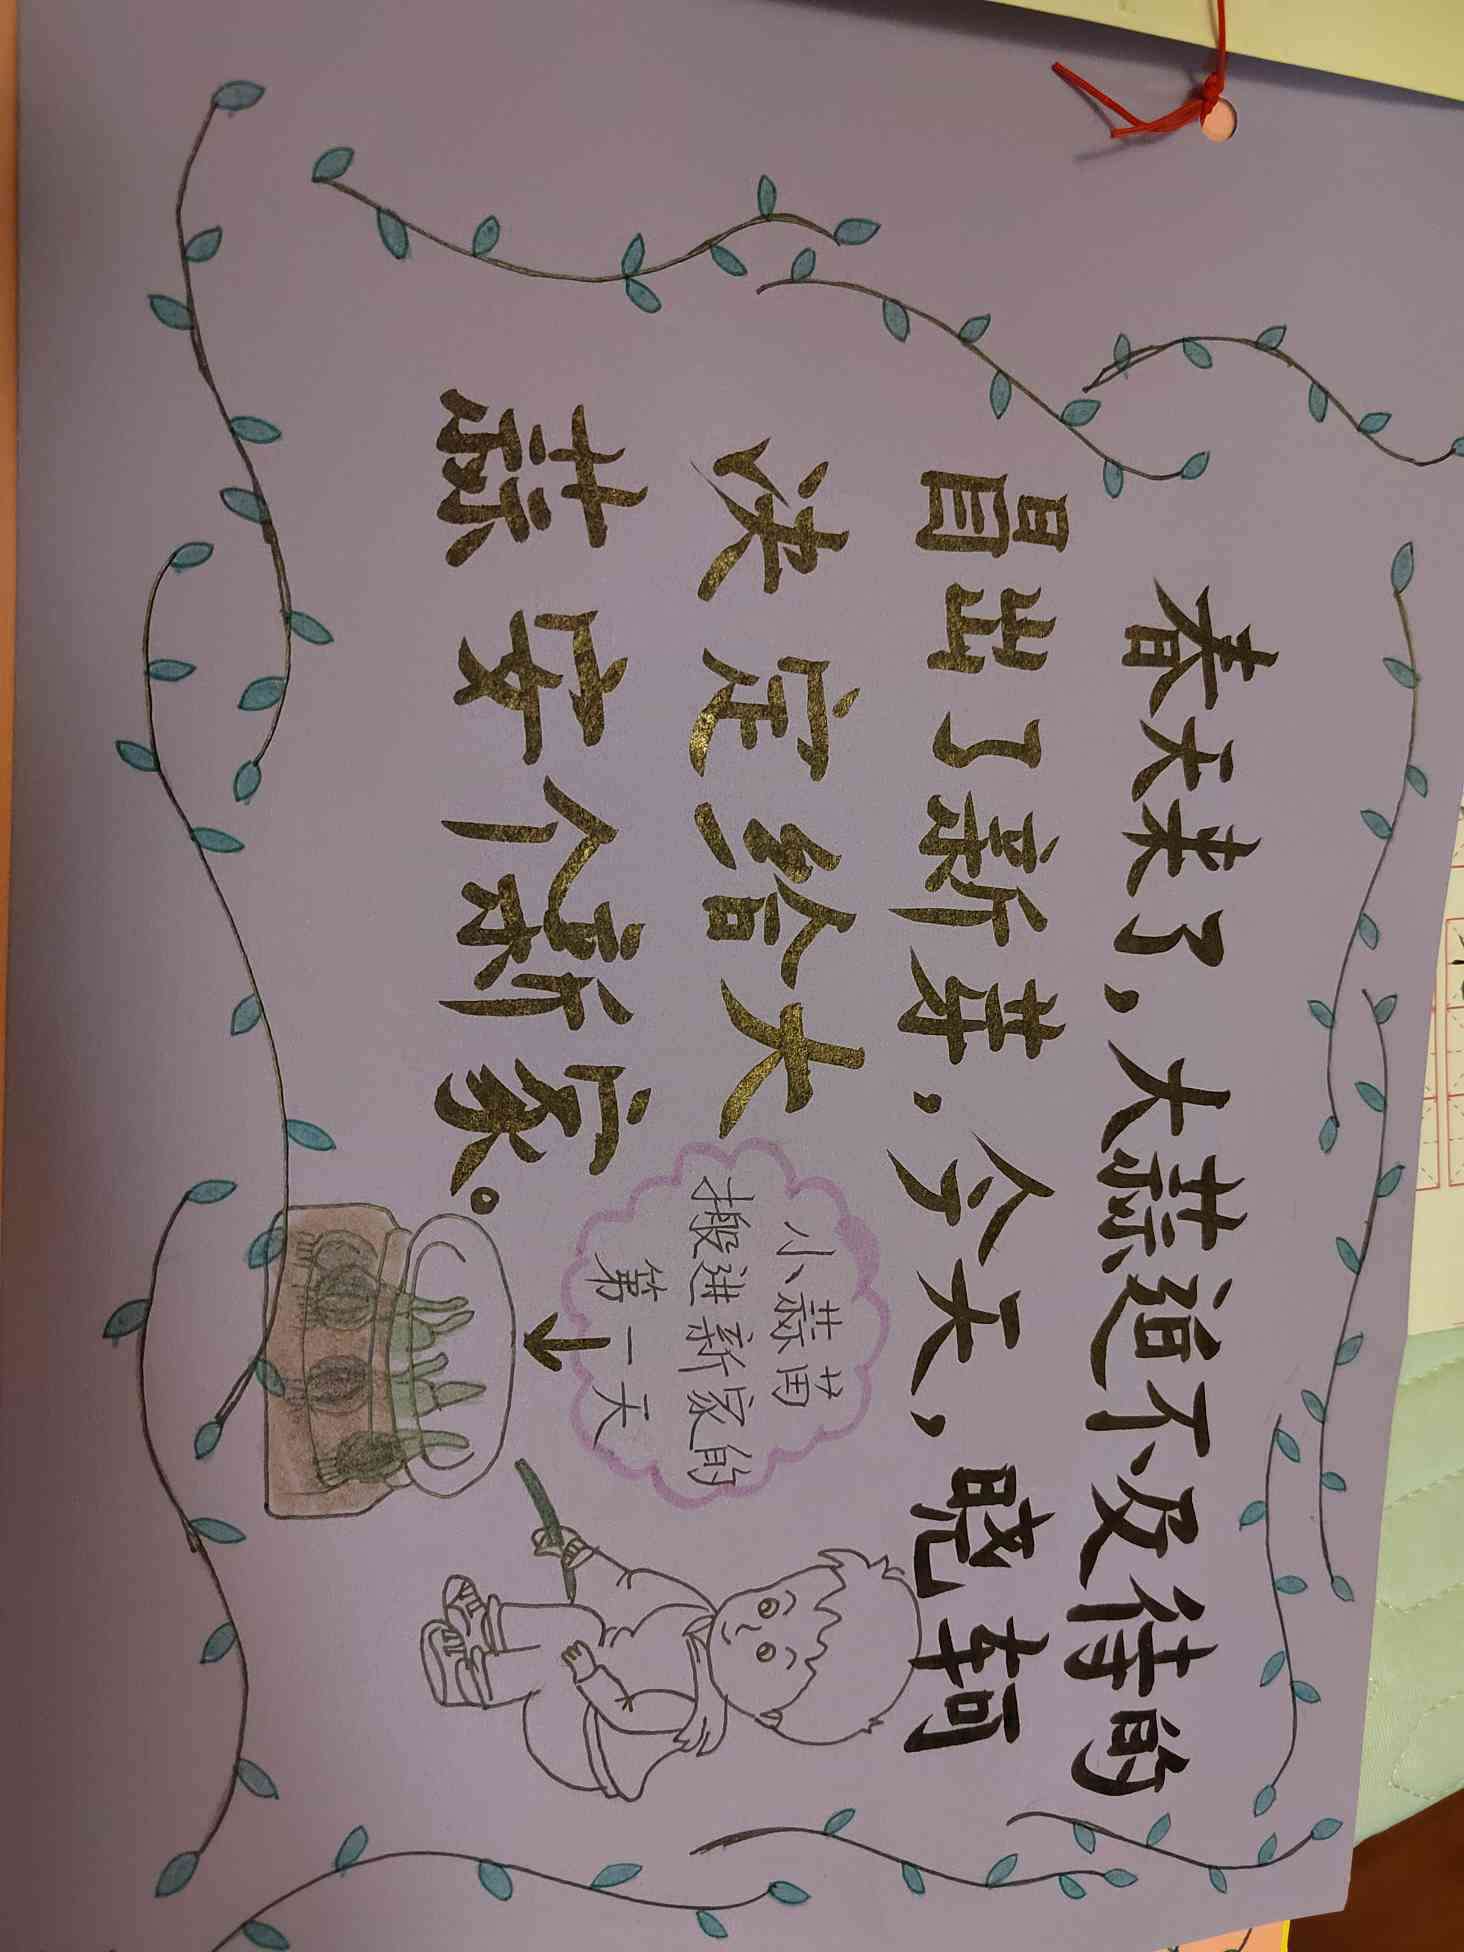 春天来了，大蒜迫不及待的
冒出了新芽，今天，晓轲
决定给大
蒜安个新家。
小蒜苗
搬进新家的
第一天